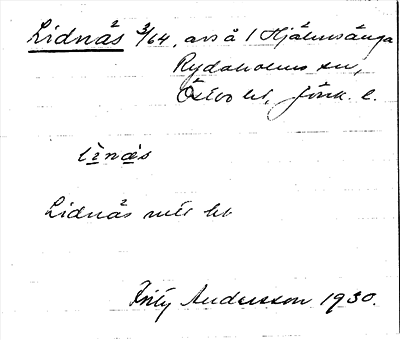 Lidnås 3/64, avs å 1 Hjälmsänga
Rydaholms sn,
Östbo hd, Jönk. l.
lìnás
Lidnås
Fritz Andersson 1930.